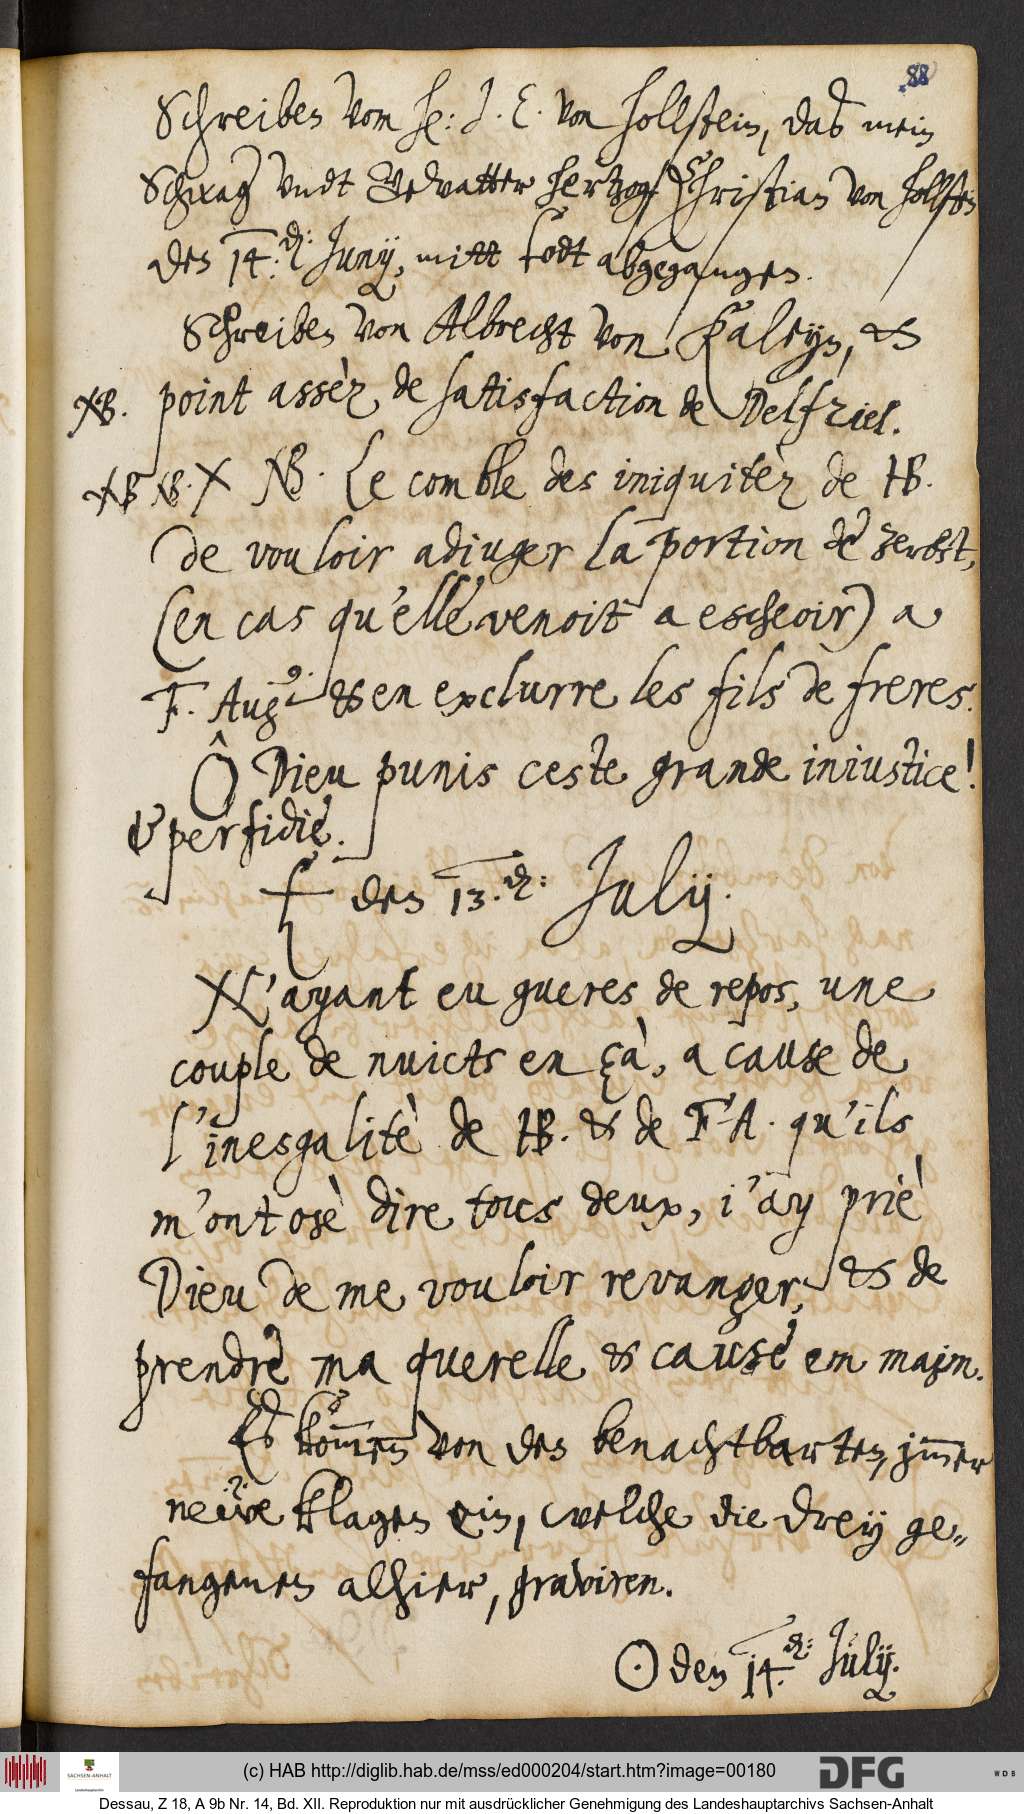 88
Schreiben vom He: J. E. von Hollstein, das mein
Schwag: undt Gevatter Hertzog Christian von Hollstein
den 14. d: Junij, mitt todt abgegangen.
Schreiben von Albrecht von Kaleyn, &
NB. point assèz de satisfaction de Delfziel.
NB NB. X NB. Le comble des iniquitèz de HB.
de vouloir adiuger la portion de Zerbst,
(en cas qu'elle venoit a escheoir) a
F. Aug & en exclurre les fils de freres.
Ô Dieu punis ceste grande iniustice!
& perfidie.
den 13. d: Julij.
N'ayant eu gueres de repos, une
couple de nuicts en çà, a cause de
l'inesgalitè de HB. & de F. A. qu'ils
m'ont osè dire tous deux, i'ay priè
Dieu de me vouloir revanger, & de
prendre ma querelle & cause en main.
Es kom̅en von den benachtbarten, jm̅er
neẅe klagen ein, welche die drey ge-
fangenen alhier, graviren.
☉ den 14. d: Julij.
(c) HAB http://diglib.hab.de/mss/ed000204/start.htm?image=00180
SACHSEN-ANHALT
Landeshauptarchiv
DFG
WDB
Dessau, Z 18, A 9b Nr. 14, Bd. XII. Reproduktion nur mit ausdrücklicher Genehmigung des Landeshauptarchivs Sachsen-Anhalt